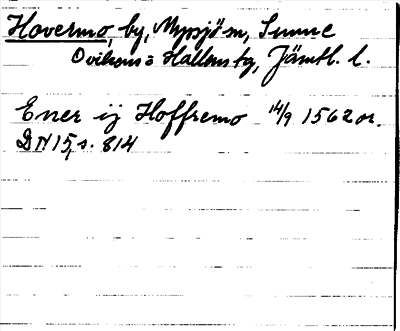 Hovermo, by, Myssjö sn, Sunne
Oviksns o Hallens tg, Jämtl. l.
Ener ij Hoffremo 14/9 1562 or.
DN 15, s. 814